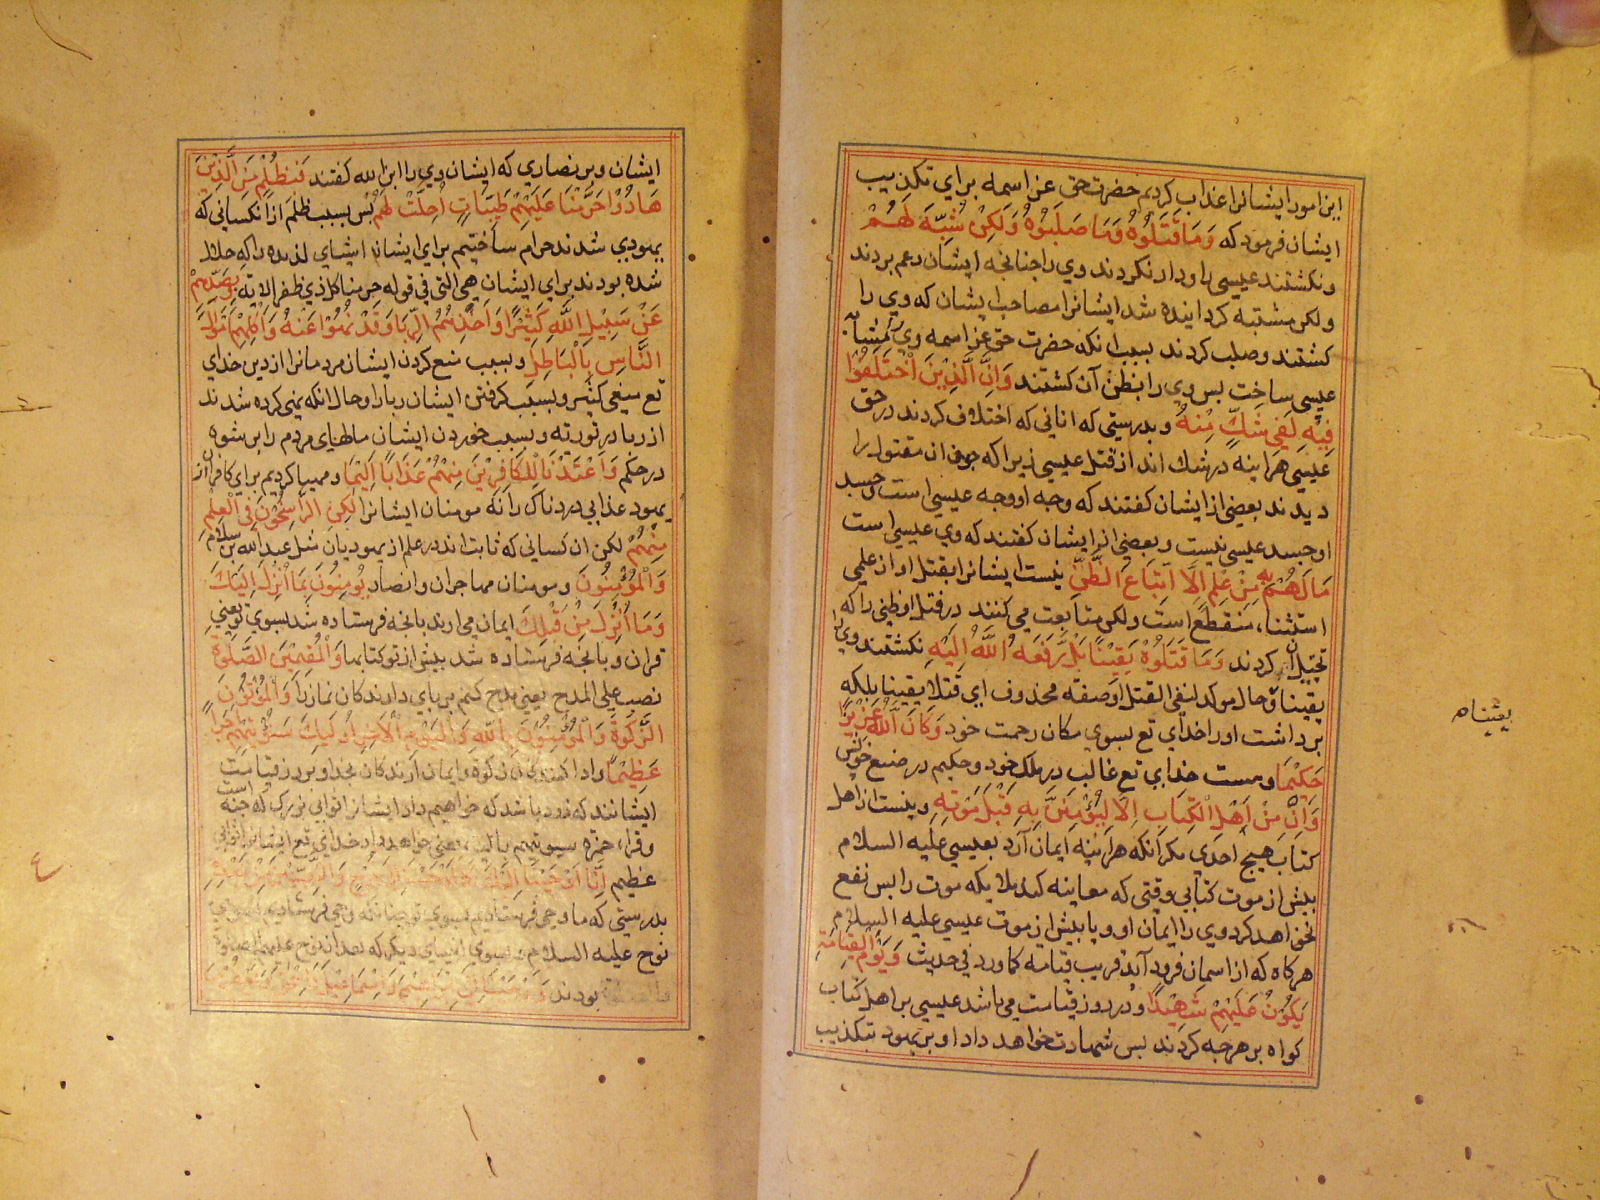 این امور ایشانرا عذاب کردیم حضرت حق عز اسمه برای تکذیب
ایشان فرمود که وَمَا قَتَلُوْهُ وَمَا صَلَبُوْهُ وَلَكِنْ شُبِّهَ لَهُمْ
و نکشتند عیسی را و دار نکردند وی را چنانچه ایشان زعم بردند
ولکن مشتبه کردانیده شد ایشانرا مصاحب ایشان که وی را
کشتند و صلب کردند بسبب انکه حضرت حق عز اسمه وی
عیسی ساخت بس وی را بظن آن کشتند وَاِنَّ الَّذِيْنَ اخْتَلَفُوْا
فِيْهِ لَفِي شَكٍّ مِنْهُ و بدرستی که انانی که اختلاف کردند در حق
عیسی هراینه در شک اند از قتل عیسی زیرا که چون ان مقتول را
دیدند بعضی از ایشان کفتند که وجه او وجه عیسی است و جسد
او جسد عیسی نیست و بعضی از ایشان کفتند که وی عیسی است
مَا لَهُمْ بِهِ مِنْ عِلْمٍ اِلَّا اتِّبَاعَ الظَّنِّ نیست ایشانرا بقتل او از علمی
استثناء منقطع است ولکن متابعت می کنند در قتل او ظنی را که
تخیل آن کردند وَمَا قَتَلُوْهُ يَقِيْنًا بَلْ رَّفَعَهُ اللَّهُ اِلَيْهِ نکشتند وی را
یقینا حال موکد لنفی القتل او صفه محذوف ای قتلا یقینا بلکه
برداشت او را خدای تع بسوی مکان رحمت خود وَكَانَ اللَّهُ عَزِيْزًا
حَكِيْمًا و هست خدای تع غالب در ملک خود و حکیم در صنع خویش
وَاِنْ مِّنْ اَهْلِ الْكِتَابِ اِلَّا لَيُؤْمِنَنَّ بِهِ قَبْلَ مَوْتِهِ و نیست از اهل
کتاب هیچ احدی مکر انکه هراینه ایمان آرد بعیسی علیه السلام
بیش از موت کتابی وقتی که معاینه کند ملایکه موت را بس نفع
نخواهد کرد وی را ایمان او و یا بیش از موت عیسی علیه السلام
هرکاه که از اسمان فرود آید قریب قیامه کما ورد فی حدیث وَيَوْمَ الْقِيَامَةِ
يَكُوْنُ عَلَيْهِمْ شَهِيْدًا و در روز قیامت می باشد عیسی بر اهل کتاب
کواه بر هرچه کردند بس شهادت خواهد داد او بر یهود بتکذیب
ایشان و بر نصاری که ایشان وی را ابن الله کفتند فَبِظُلْمٍ مِّنَ الَّذِيْنَ
هَادُوْا حَرَّمْنَا عَلَيْهِمْ طَيِّبَاتٍ اُحِلَّتْ لَهُمْ بس بسبب ظلم از انکسانی که
یهودی شدند حرام ساختیم برای ایشان اشیای لذیذه را که حلال
شده بودند برای ایشان هی التی فی قوله حرمنا کل ذی ظفر الایة وَبِصَدِّهِمْ
عَنْ سَبِيْلِ اللَّهِ كَثِيْرًا وَاَخْذِهِمُ الرِّبَا وَقَدْ نُهُوْا عَنْهُ وَاَكْلِهِمْ اَمْوَالَ
النَّاسِ بِالْبَاطِلِ و بسبب منع کردن ایشان مردمانرا از دین خدای
تع منعی کثیر و بسبب کرفتن ایشان ربا را و حال انکه نهی کرده شدند
از ربا در توریته و بسبب خوردن ایشان مالهای مردم را برشوه
در حکم وَاَعْتَدْنَا لِلْكَافِرِيْنَ مِنْهُمْ عَذَابًا اَلِيْمًا و مهیا کردیم برای کافران از
یهود عذابی دردناک را نه مومنان ایشانرا لَكِنِ الرَّاسِخُوْنَ فِي الْعِلْمِ
مِنْهُمْ لکن ان کسانی که ثابت اند در علم از یهودیان مثل عبد الله بن سلام
وَالْمُؤْمِنُوْنَ و مومنان مهاجران و انصار يُؤْمِنُوْنَ بِمَا اُنْزِلَ اِلَيْكَ
وَمَا اُنْزِلَ مِنْ قَبْلِكَ ایمان می ارند بانچه فرستاده شد بسوی تو یعنی
قران و بانچه فرستاده شد بیش از تو کتابها وَالْمُقِيْمِيْنَ الصَّلٰوةَ
نصب علی المدح یعنی مدح کنم بربای دارندکان نماز را وَالْمُؤْتُوْنَ
الزَّكٰوةَ وَالْمُؤْمِنُوْنَ بِاللَّهِ وَالْيَوْمِ الْاٰخِرِ اُولٰئِكَ سَنُؤْتِيْهِمْ اَجْرًا
عَظِيْمًا و ادا کنندکان زکوة و ایمان آرندکان بخدا و بروز قیامت
ایشانند که زود باشد که خواهیم داد ایشانرا ثوابی بزرک که جنه است
و قراء حمزه سیوتیهم بالیا یعنی خواهد داد خدای تع ایشانرا ثوابی
عظیم اِنَّا اَوْحَيْنَا اِلَيْكَ كَمَا اَوْحَيْنَا اِلٰى نُوْحٍ وَالنَّبِيِّيْنَ مِنْ بَعْدِهِ
بدرستی که ما وحی فرستادیم بسوی تو چنانکه وحی فرستادیم بسوی
نوح علیه السلام و بسوی انبیای دیکر که بعد از نوح علیهم الصلوة
بودند
یقیناه
ع